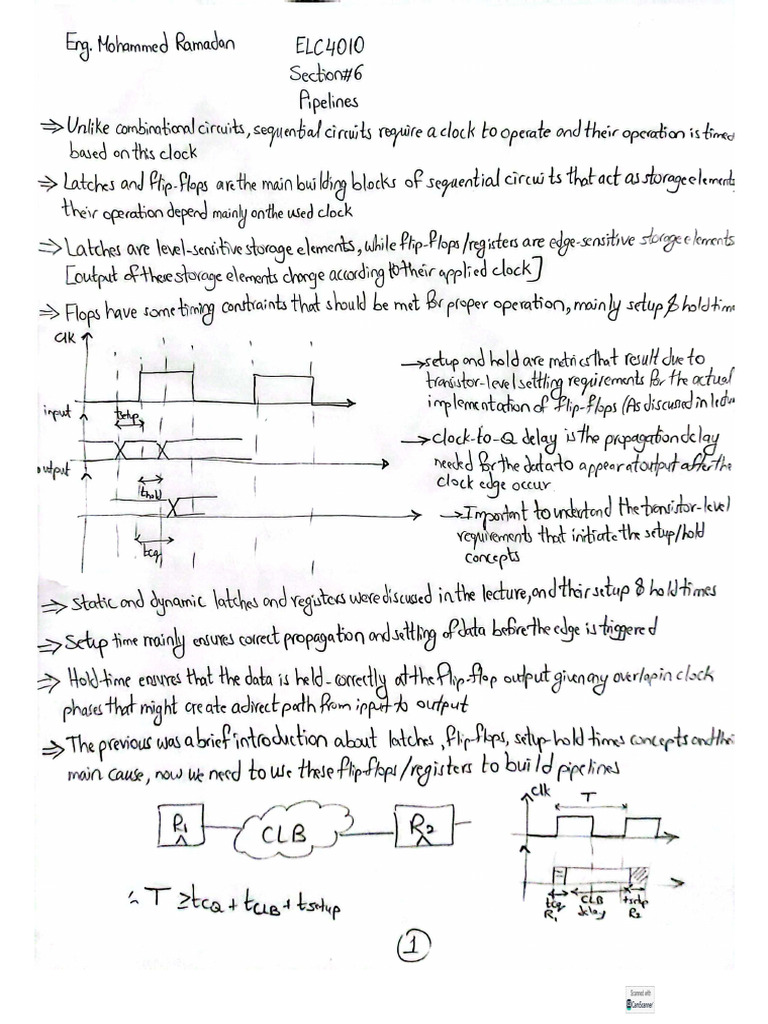 Eng. Mohammed Ramadan
ELC4010
Section#6
Pipelines
⇒ Unlike combinational circuits, sequential circuits require a clock to operate and their operation is timed
based on this clock
⇒ Latches and flip-flops are the main building blocks of sequential circuits that act as storage elements
their operation depend mainly on the used clock
⇒ Latches are level-sensitive storage elements, while flip-flops/registers are edge-sensitive storage elements
[output of these storage elements change according to their applied clock]
⇒ Flops have some timing constraints that should be met for proper operation, mainly setup & hold time
clk
input
tsetup
output
thold
tcq
→ setup and hold are metrics that result due to
transistor-level settling requirements for the actual
implementation of flip-flops (As discussed in lectu
→ clock-to-Q delay is the propagation delay
needed for the data to appear at output after the
clock edge occur
→ Important to understand the transistor-level
requirements that initiate the setup/hold
concepts
⇒ Static and dynamic latches and registers were discussed in the lecture, and their setup & hold times
⇒ Setup time mainly ensures correct propagation and settling of data before the edge is triggered
⇒ Hold-time ensures that the data is held-correctly at the flip-flop output given any overlap in clock
phases that might create a direct path from input to output
⇒ The previous was a brief introduction about latches, flip-flops, setup-hold times concepts and their
main cause, now we need to use these flip-flops/registers to build pipelines
R1
CLB
R2
clk
T
tcq
R1
CLB
delay
tsetup
R2
∴ T ≥ tCQ + tCLB + tsetup
1
Scanned with
CamScanner